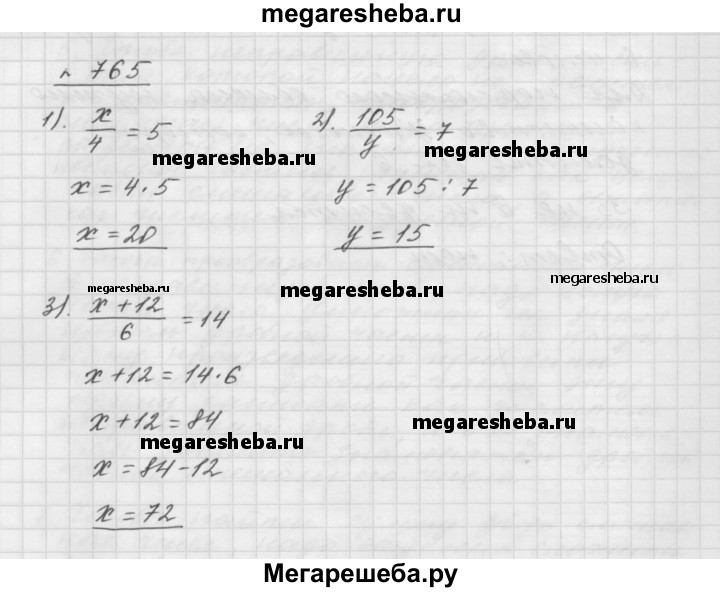 megaresheba.ru
№ 765
1). x/4 = 5
2). 105/y = 7
megaresheba.ru
megaresheba.ru
x = 4 · 5
y = 105 : 7
x = 20
y = 15
megaresheba.ru
megaresheba.ru
megaresheba.ru
3). x + 12/6 = 14
x + 12 = 14 · 6
x + 12 = 84
megaresheba.ru
megaresheba.ru
x = 84 - 12
x = 72
Мегарешеба.ру